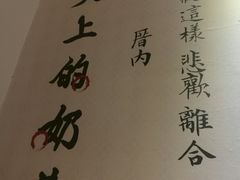 這樣悲歡離合
厝内
上的奶